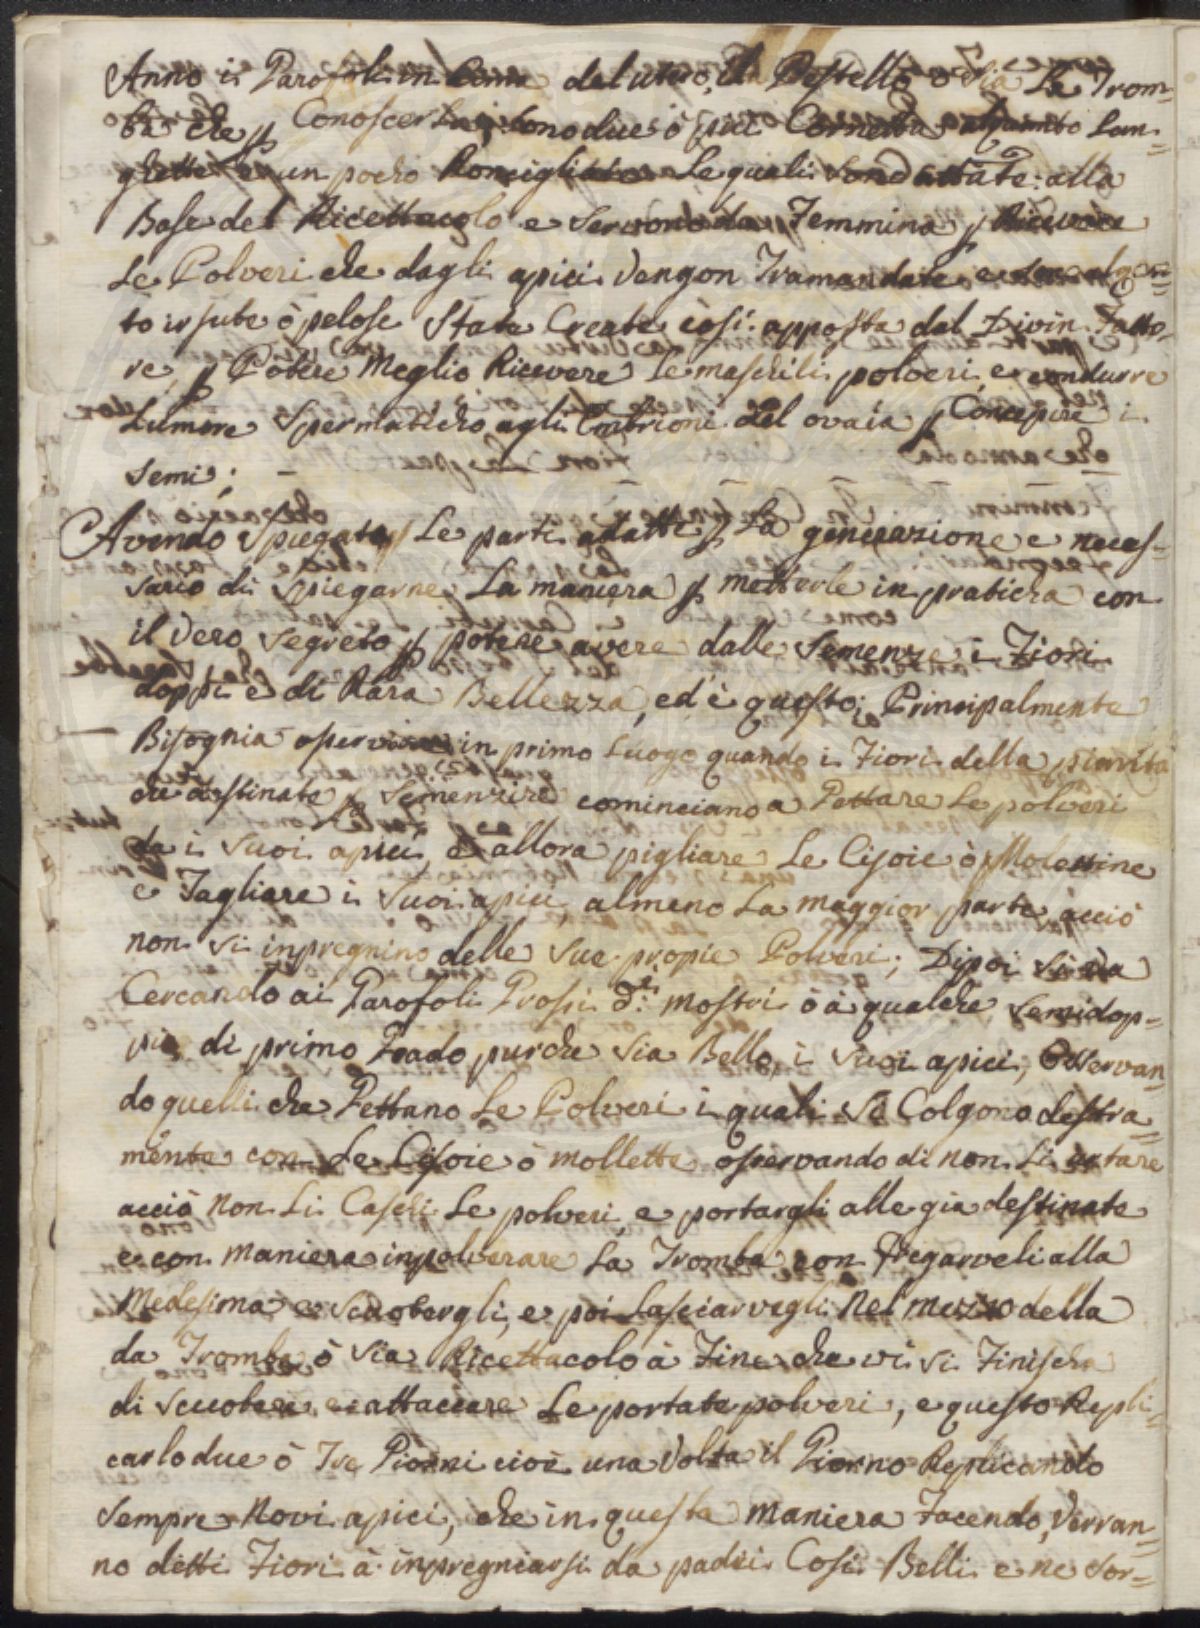 Anno i Parofoli in Cima del utero, il Pestello o sia La Trom-
ba che ꝑ Conoscerla sono due ò piu Cornetta alquanto Lun-
ghette e un pocho Roncigliate Le quali sono attate alla
Base del Ricettacolo e servono da Femmina ꝑ Ricevere
Le Polveri che dagli apici vengon Tramandate e son alquan-
to irsute ò pelose State Create così apposta dal Divin Fatto-
re ꝑ Potere Meglio Ricevere Le maschili polveri, e condurre
Lumore Spermaticho agli Embrioni del ovaia ꝑ Concepire i
semi;
Avendo Spiegato Le parti adatte ꝑ La generazione e neces-
sario di spiegarne La maniera ꝑ metterle in praticha con
il vero segreto ꝑ potere avere dalle semenze i Fiori
doppi e di Rara Bellezza, ed è questo; Principalmente
Bisognia osservare in primo Luogo quando i Fiori della pianta
che destinate ꝑ semenzire cominciano a Gettare Le polveri
da i suoi apici, e allora pigliare Le Cisoie ò Molettine
e Tagliare i suoi apici, almeno La maggior parte, acciò
non si inpregnino delle sue propie Polveri; Dipoi si va
Cercando ai Parofoli Grossi d.i mostri ò à qualche semidop-
pio di primo Grado purche sia Bello, i suoi apici, Osservan-
do quelli che Gettano Le Polveri i quali si Colgono destra-
mente con Le Cisoie ò mollette osservando di non Li urtare
acciò non Li Caschi Le polveri, e portargli alle già destinate
e con maniera inpolverare La Tromba con fregarveli alla
Medesima e scuotergli, e poi Lasciarvegli Nel mezzo della
da Tromba ò sia Ricettacolo à Fine che vi si Finischa
di scuotere e attaccare Le portate polveri, e questo Repli-
carlo due ò Tre Giorni cioè una Volta il Giorno Replicando
sempre Novi apici, che in questa maniera Facendo, Verran-
no detti Fiori à inpregniarsi da padri Cosi Belli e ne sor-